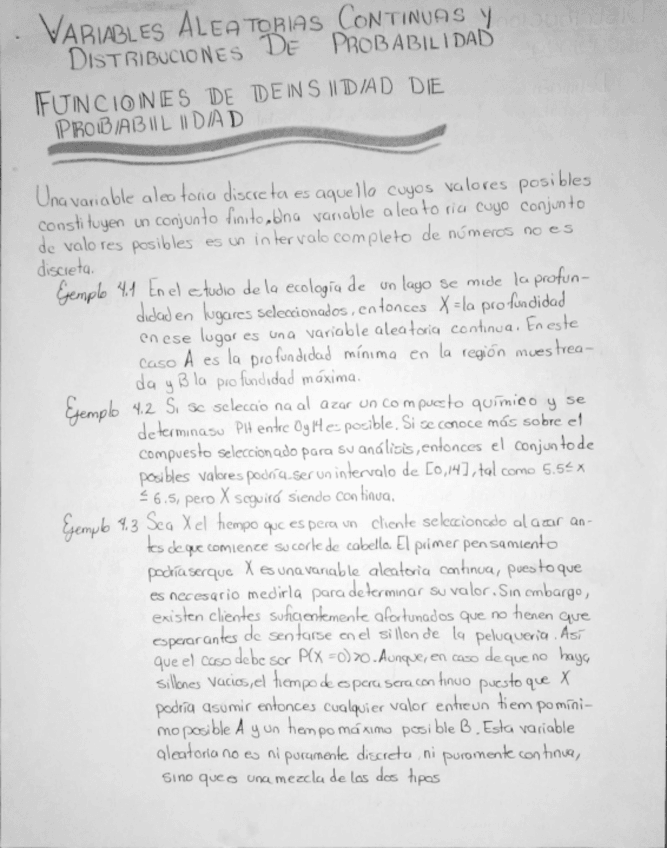 VARIABLES ALEATORIAS CONTINUAS Y
DISTRIBUCIONES DE PROBABILIDAD
FUNCIONES DE DENSIDAD DE
PROBABILIDAD
Una variable aleatoria discreta es aquella cuyos valores posibles
constituyen un conjunto finito. Una variable aleatoria cuyo conjunto
de valores posibles es un intervalo completo de números no es
discreta.
Ejemplo 4.1 En el etudio de la ecología de un lago se mide la profun-
didad en lugares seleccionados, entonces X = la profundidad
en ese lugar es una variable aleatoria continua. En este
caso A es la profundidad mínima en la región muestrea-
da y B la profundidad máxima.
Ejemplo 4.2 Si se selecciona al azar un compuesto químico y se
determina su PH entre 0 y 14 es posible. Si se conoce más sobre el
compuesto seleccionado para su análisis, entonces el conjunto de
posibles valores podría ser un intervalo de [0,14], tal como 5.5 ≤ x
≤ 6.5, pero X seguirá siendo continua.
Ejemplo 4.3 Sea X el tiempo que espera un cliente seleccionado al azar an-
tes de que comience su corte de cabello. El primer pensamiento
podría ser que X es una variable aleatoria continua, puesto que
es necesario medirla para determinar su valor. Sin embargo,
existen clientes suficientemente afortunados que no tienen que
esperar antes de sentarse en el sillon de la peluqueria. Así
que el caso debe ser P(X=0)>0. Aunque, en caso de que no haya
sillones vacios, el tiempo de espera sera continuo puesto que X
podría asumir entonces cualquier valor entre un tiempo míni-
mo posible A y un tiempo máximo posible B. Esta variable
aleatoria no es ni puramente discreta ni puramente continua,
sino que es una mezcla de los dos tipos